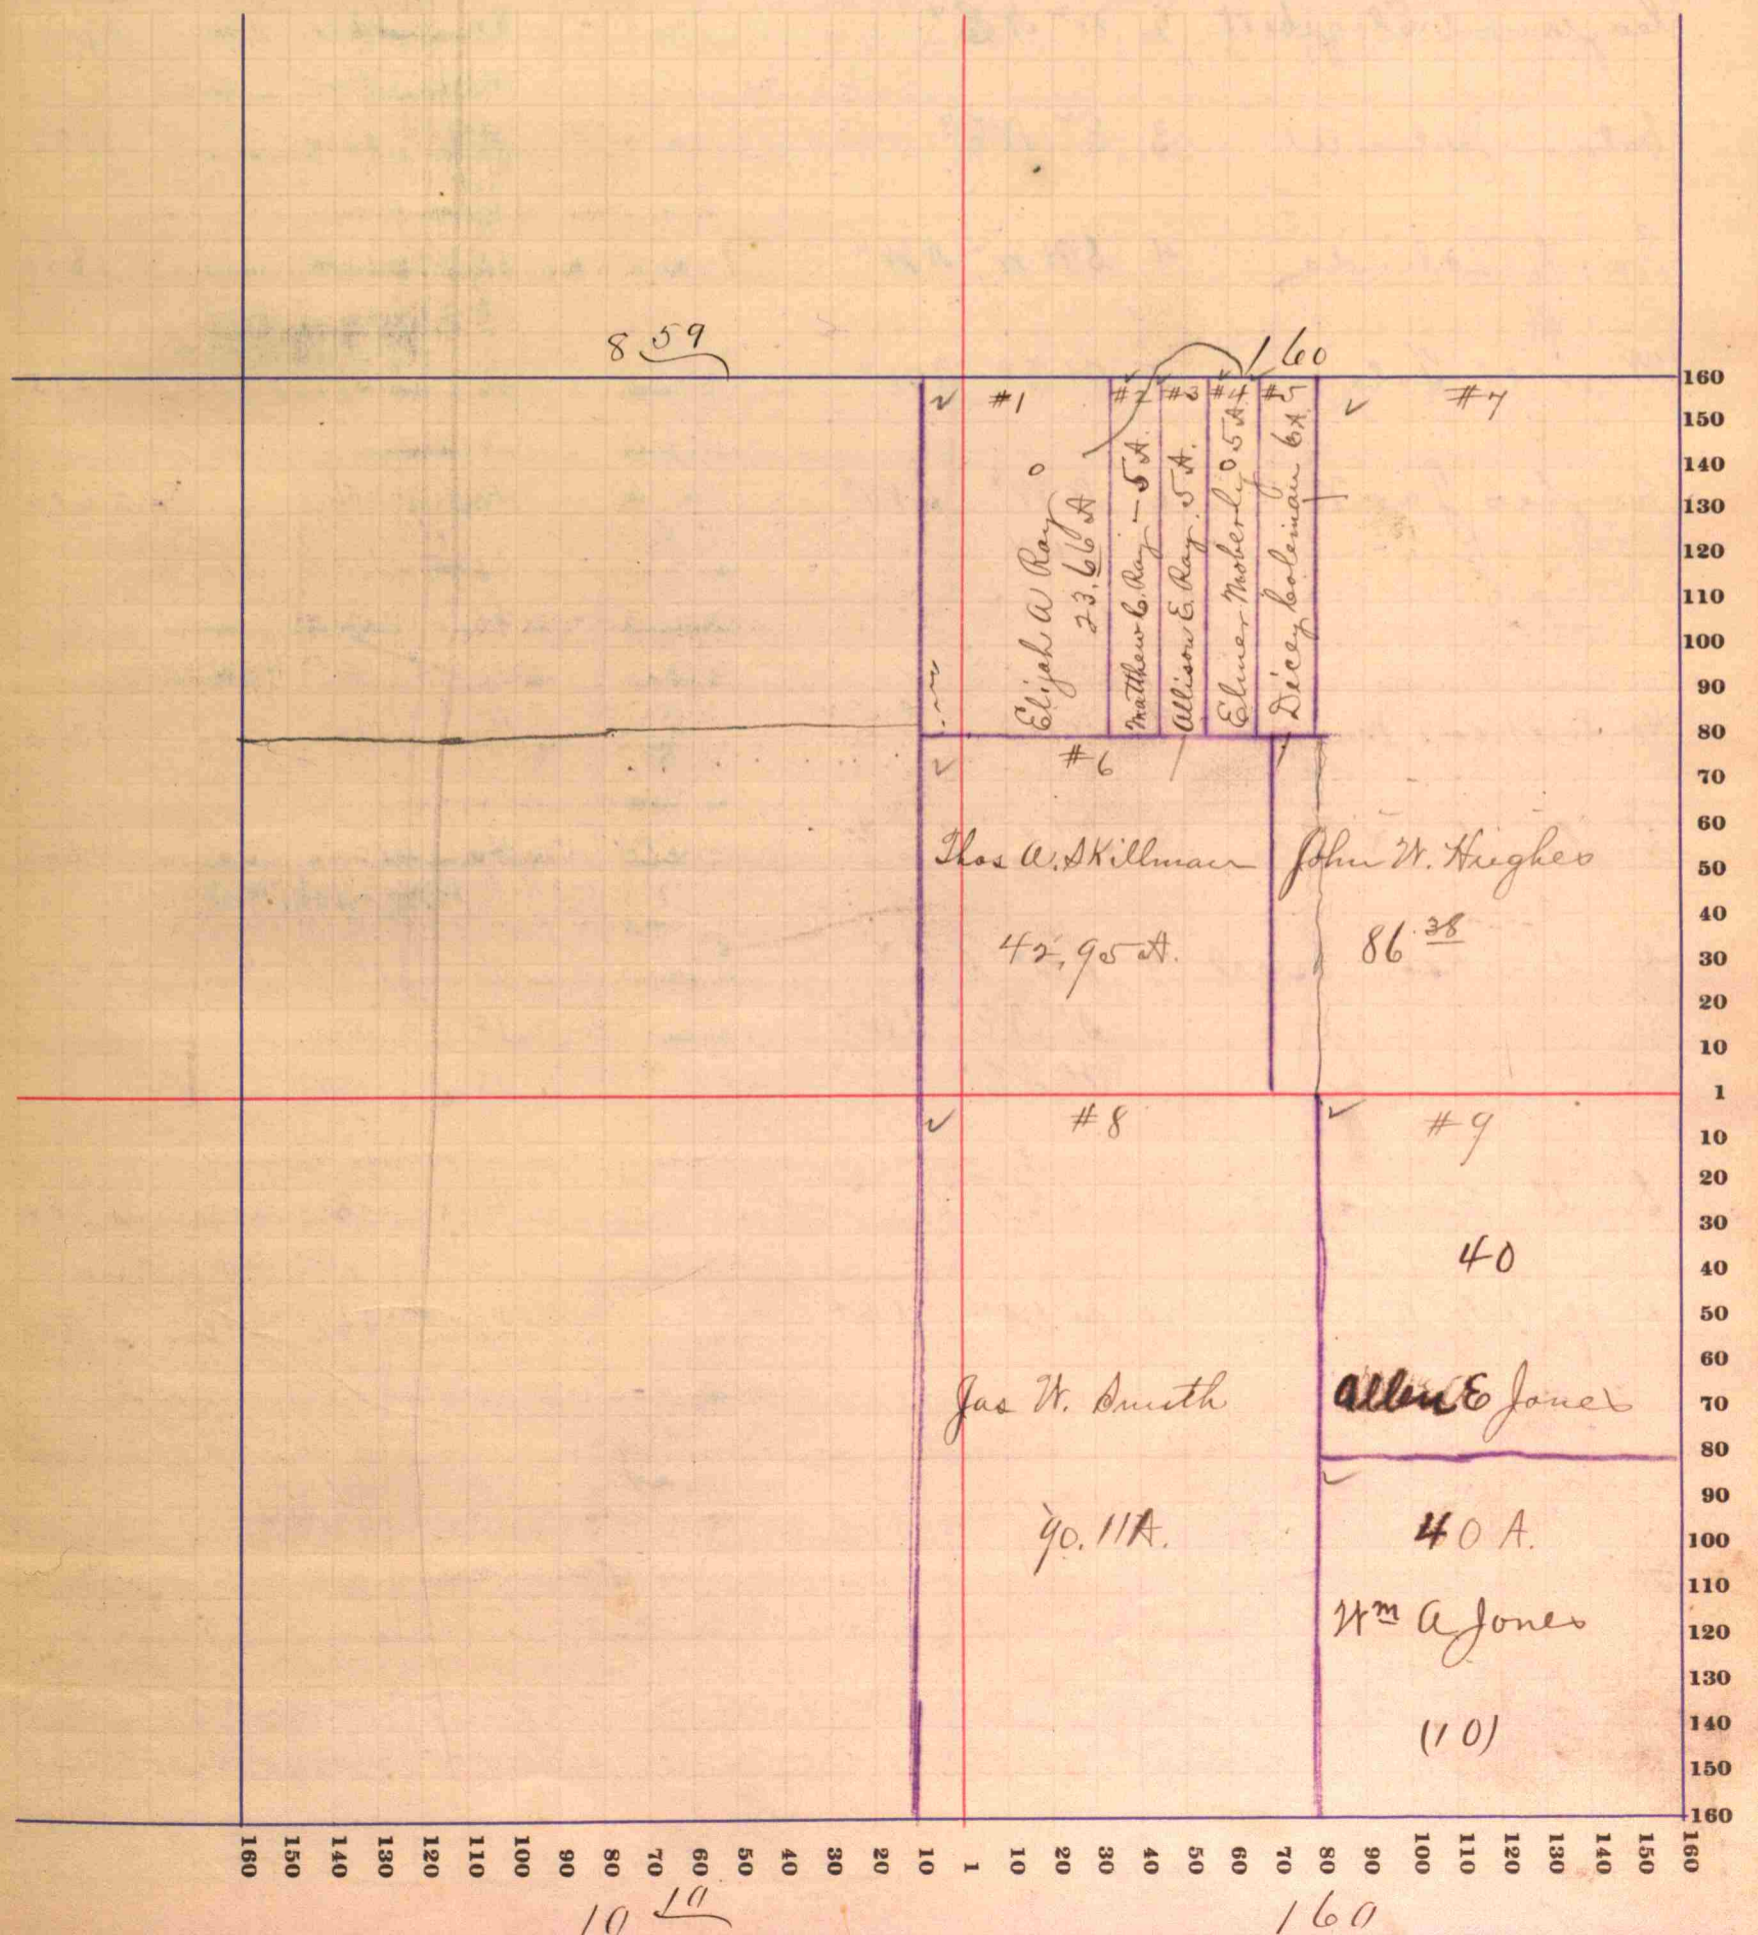 8 59
160
#1
#2
#3
#4
#5
#7
Elijah A Ray
23.66 A
Matthew C. Ray - 5 A.
Allison E. Ray. 5 A.
Elmer Moberly 05 A
Dicey Coleman 6 A
#6
Thos A. Skillman
42,95 A.
John W. Hughes
86.38
#8
#9
40
Allen E Jones
Jas W. Smith
90.11 A.
40 A.
Wm A Jones
(10)
160
150
140
130
120
110
100
90
80
70
60
50
40
30
20
10
1
10
20
30
40
50
60
70
80
90
100
110
120
130
140
150
160
160 150 140 130 120 110 100 90 80 70 60 50 40 30 20 10 1 10 20 30 40 50 60 70 80 90 100 110 120 130 140 150 160
10 10
160